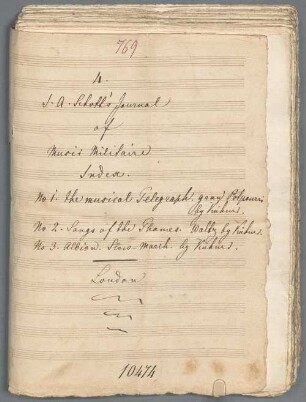 769
4.
J. A. Schott's Journal
of
Music Militaire
Index.
No 1. the musical Telegraph. Potpourri
by Kühner.
No 2. Songs of the Thames. Waltz by Kühner.
No 3. Albion. Slow March. by Kühner.
London
10474